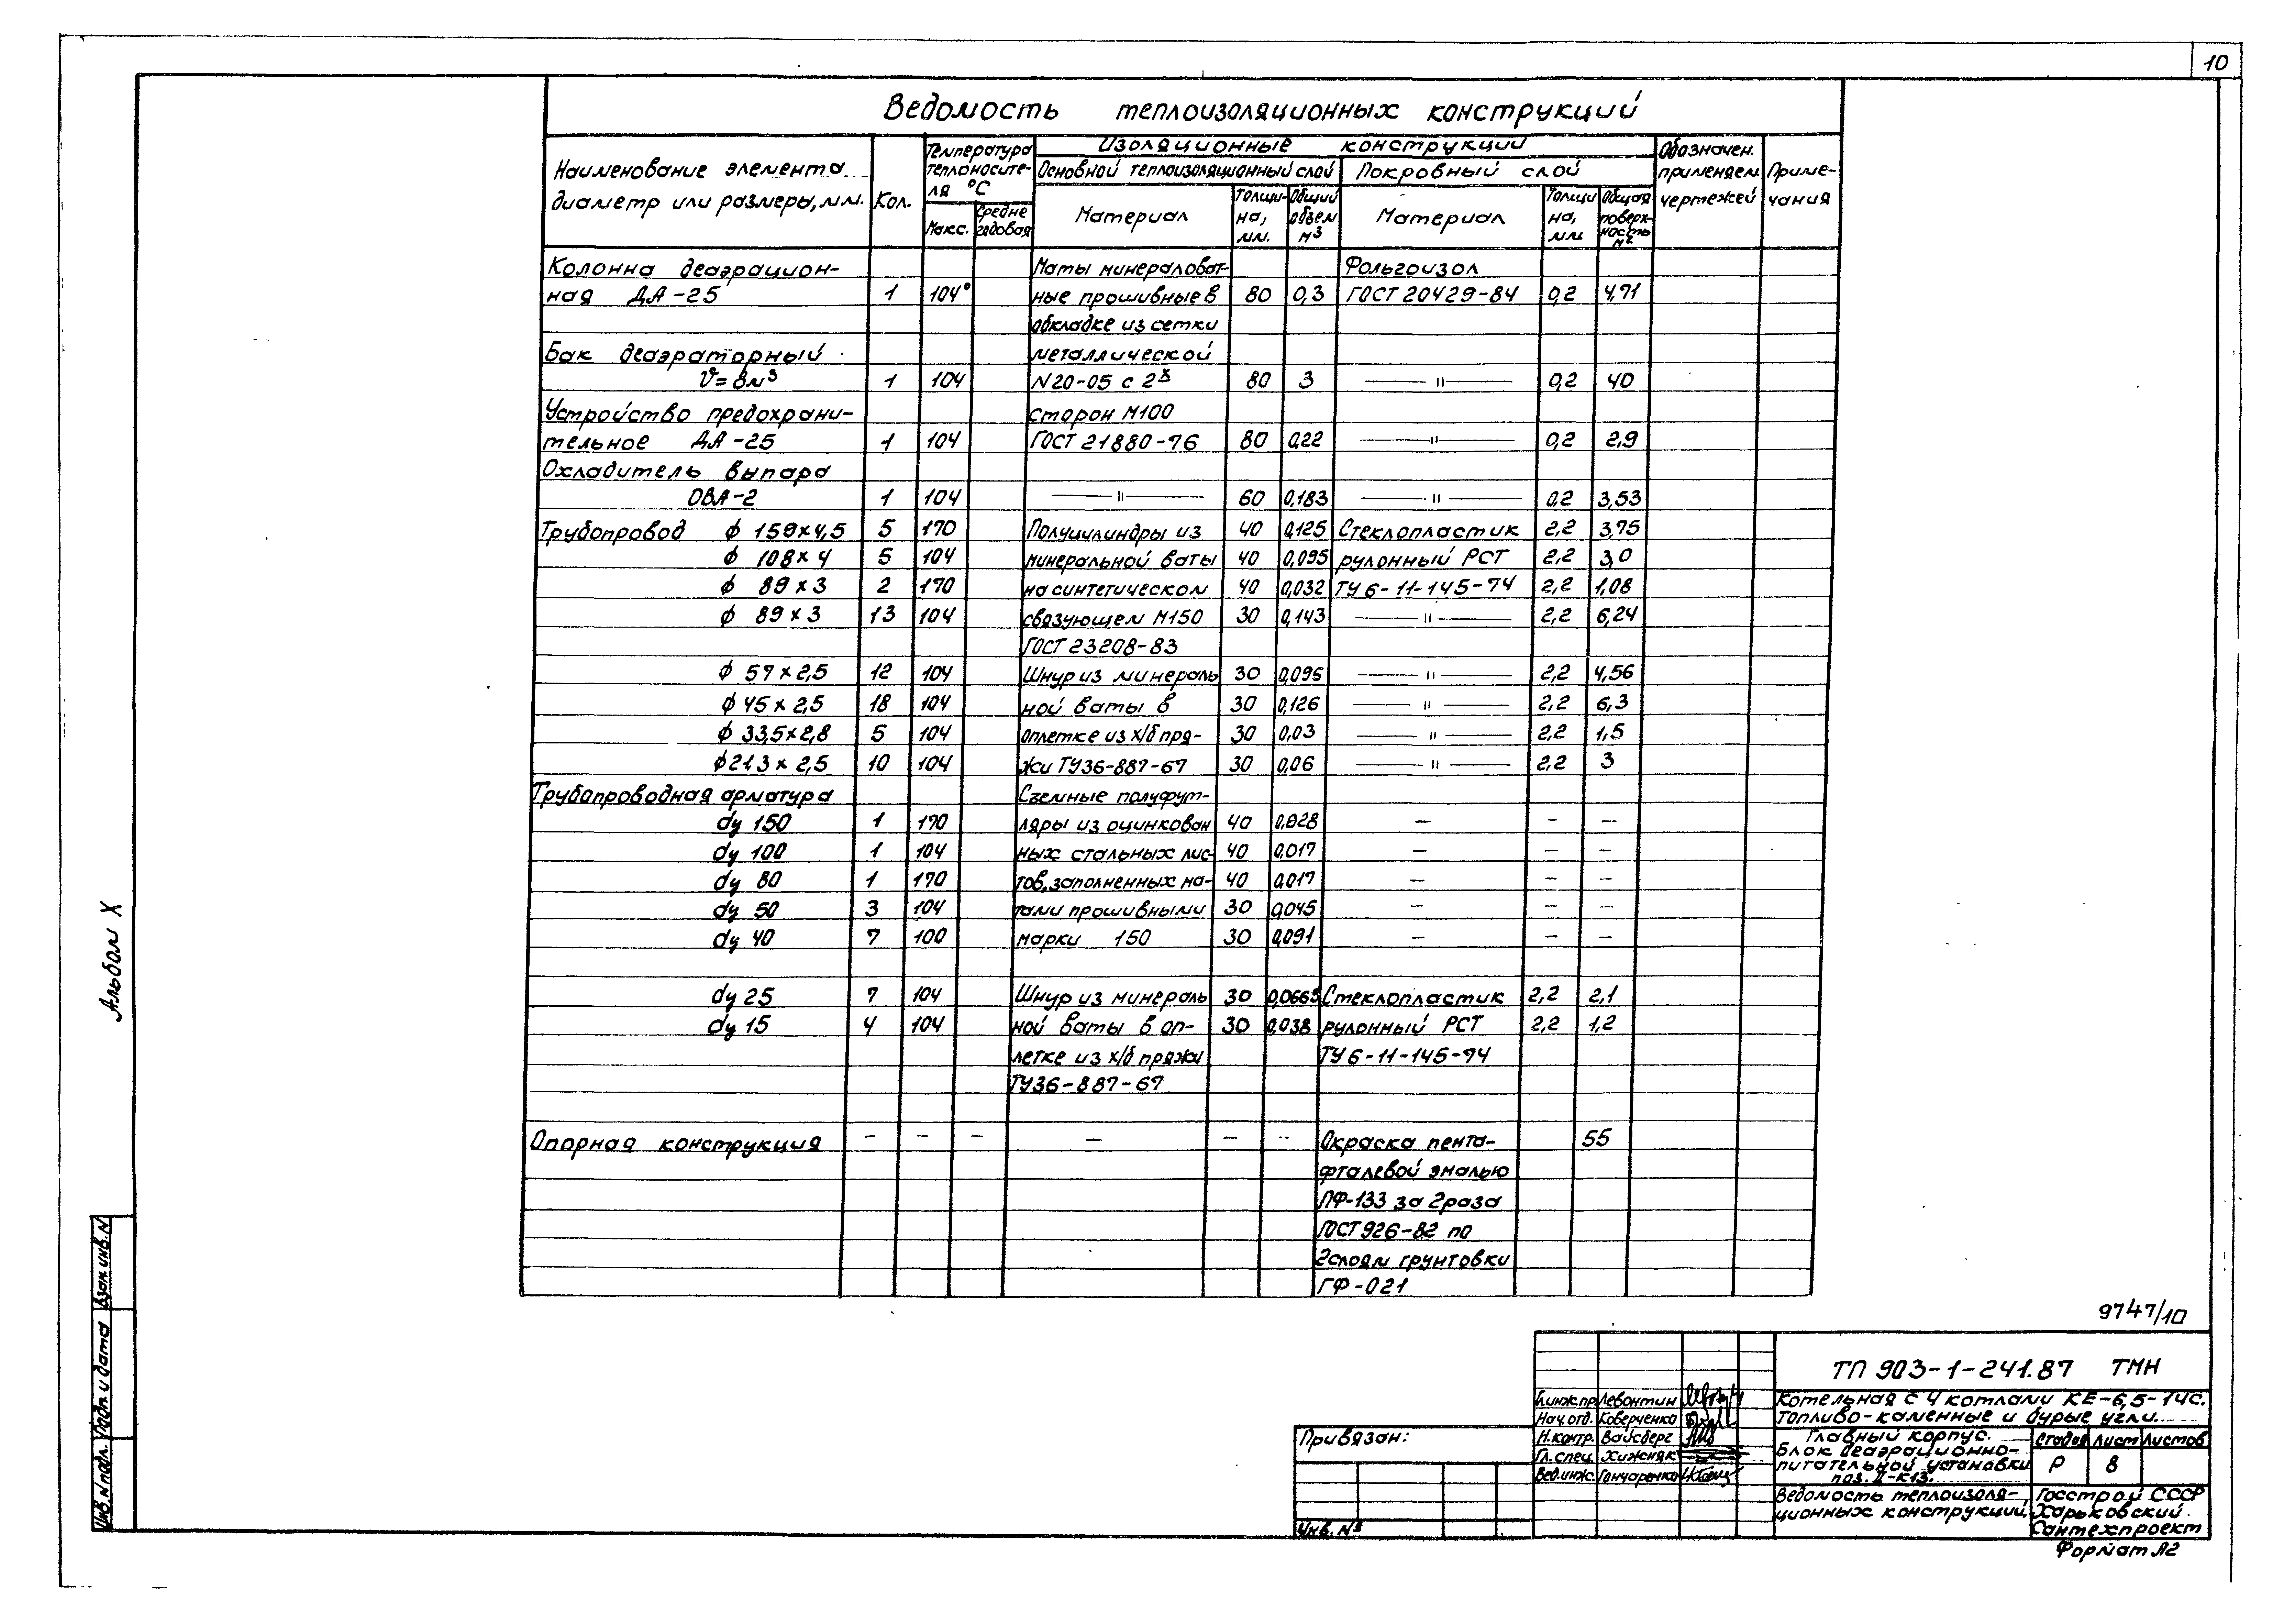 10
Ведомость теплоизоляционных конструкций
Наименование элемента диаметр или размеры, мм.
Кол.
Температура теплоносителя °С
Макс.
Средне годовая
Изоляционные конструкции
Основной теплоизоляционный слой
Покровный слой
Материал
Толщина, мм.
Общий объем м³
Материал
Толщина, мм
Общая поверхность м²
Обозначен. применяем чертежей
Примечания
Колонна деаэрацион- Маты минераловат- Фольгоизол
ная ДА-25 1 104° ные прошивные в 80 0,3 ГОСТ 20429-84 0,2 4,71
обкладке из сетки
Бак деаэраторный металлической
V=8м³ 1 104 N20-05 с 2х 80 3 — " — 0,2 40
Устройство предохрани- сторон М100
тельное ДА-25 1 104 ГОСТ 21880-76 80 0,22 — " — 0,2 2,9
Охладитель выпара
ОВА-2 1 104 — " — 60 0,183 — " — 0,2 3,53
Трубопровод ф 159×4,5 5 170 Полуцилиндры из 40 0,125 Стеклопластик 2,2 3,75
ф 108×4 5 104 минеральной ваты 40 0,095 рулонный РСТ 2,2 3,0
ф 89×3 2 170 на синтетическом 40 0,032 ТУ 6-11-145-74 2,2 1,08
ф 89×3 13 104 связующем М150 30 0,143 — " — 2,2 6,24
ГОСТ 23208-83
ф 57×2,5 12 104 Шнур из минераль 30 0,096 — " — 2,2 4,56
ф 45×2,5 18 104 ной ваты в 30 0,126 — " — 2,2 6,3
ф 33,5×2,8 5 104 оплетке из х/б пря- 30 0,03 — " — 2,2 1,5
ф 21.3×2,5 10 104 жи ТУ36-887-67 30 0,06 — " — 2,2 3
Трубопроводная арматура Съемные полуфут-
dу 150 1 170 ляры из оцинкован 40 0,028 — — —
dу 100 1 104 ных стальных лис- 40 0,017 — — —
dу 80 1 170 тов, заполненных ма- 40 0,017 — — —
dу 50 3 104 тами прошивными 30 0,045 — — —
dу 40 7 100 марки 150 30 0,091 — — —
dу 25 7 104 Шнур из минераль 30 0,0665 Стеклопластик 2,2 2,1
dу 15 4 104 ной ваты в оп- 30 0,038 рулонный РСТ 2,2 1,2
летке из х/б пряжи ТУ 6-11-145-74
ТУ36-887-67
Опорная конструкция — — — — — — Окраска пента- 55
фталевой эмалью
ПФ-133 за 2раза
ГОСТ 926-82 по
2слоям грунтовки
ГФ-021
Альбом X
Взам инв. N
Подп и дата
Инв. N подл.
9747/10
ТП 903-1-241.87 ТМН
Котельная с 4 котлами КЕ-6,5-14С.
Топливо-каменные и бурые угли.
Гл.инж.пр. Левонтин
Нач.отд. Коверченко
Н.контр. Вайсберг
Гл.спец. Хижняк
Вед.инж. Гончаренко
Главный корпус.
Блок деаэрационно-
питательной установки
поз. II-К13.
Стадия Лист Листов
Р 8
Ведомость теплоизоля-
ционных конструкций.
Госстрой СССР
Харьковский
Сантехпроект
Привязан:
Инв. №
Формат А2